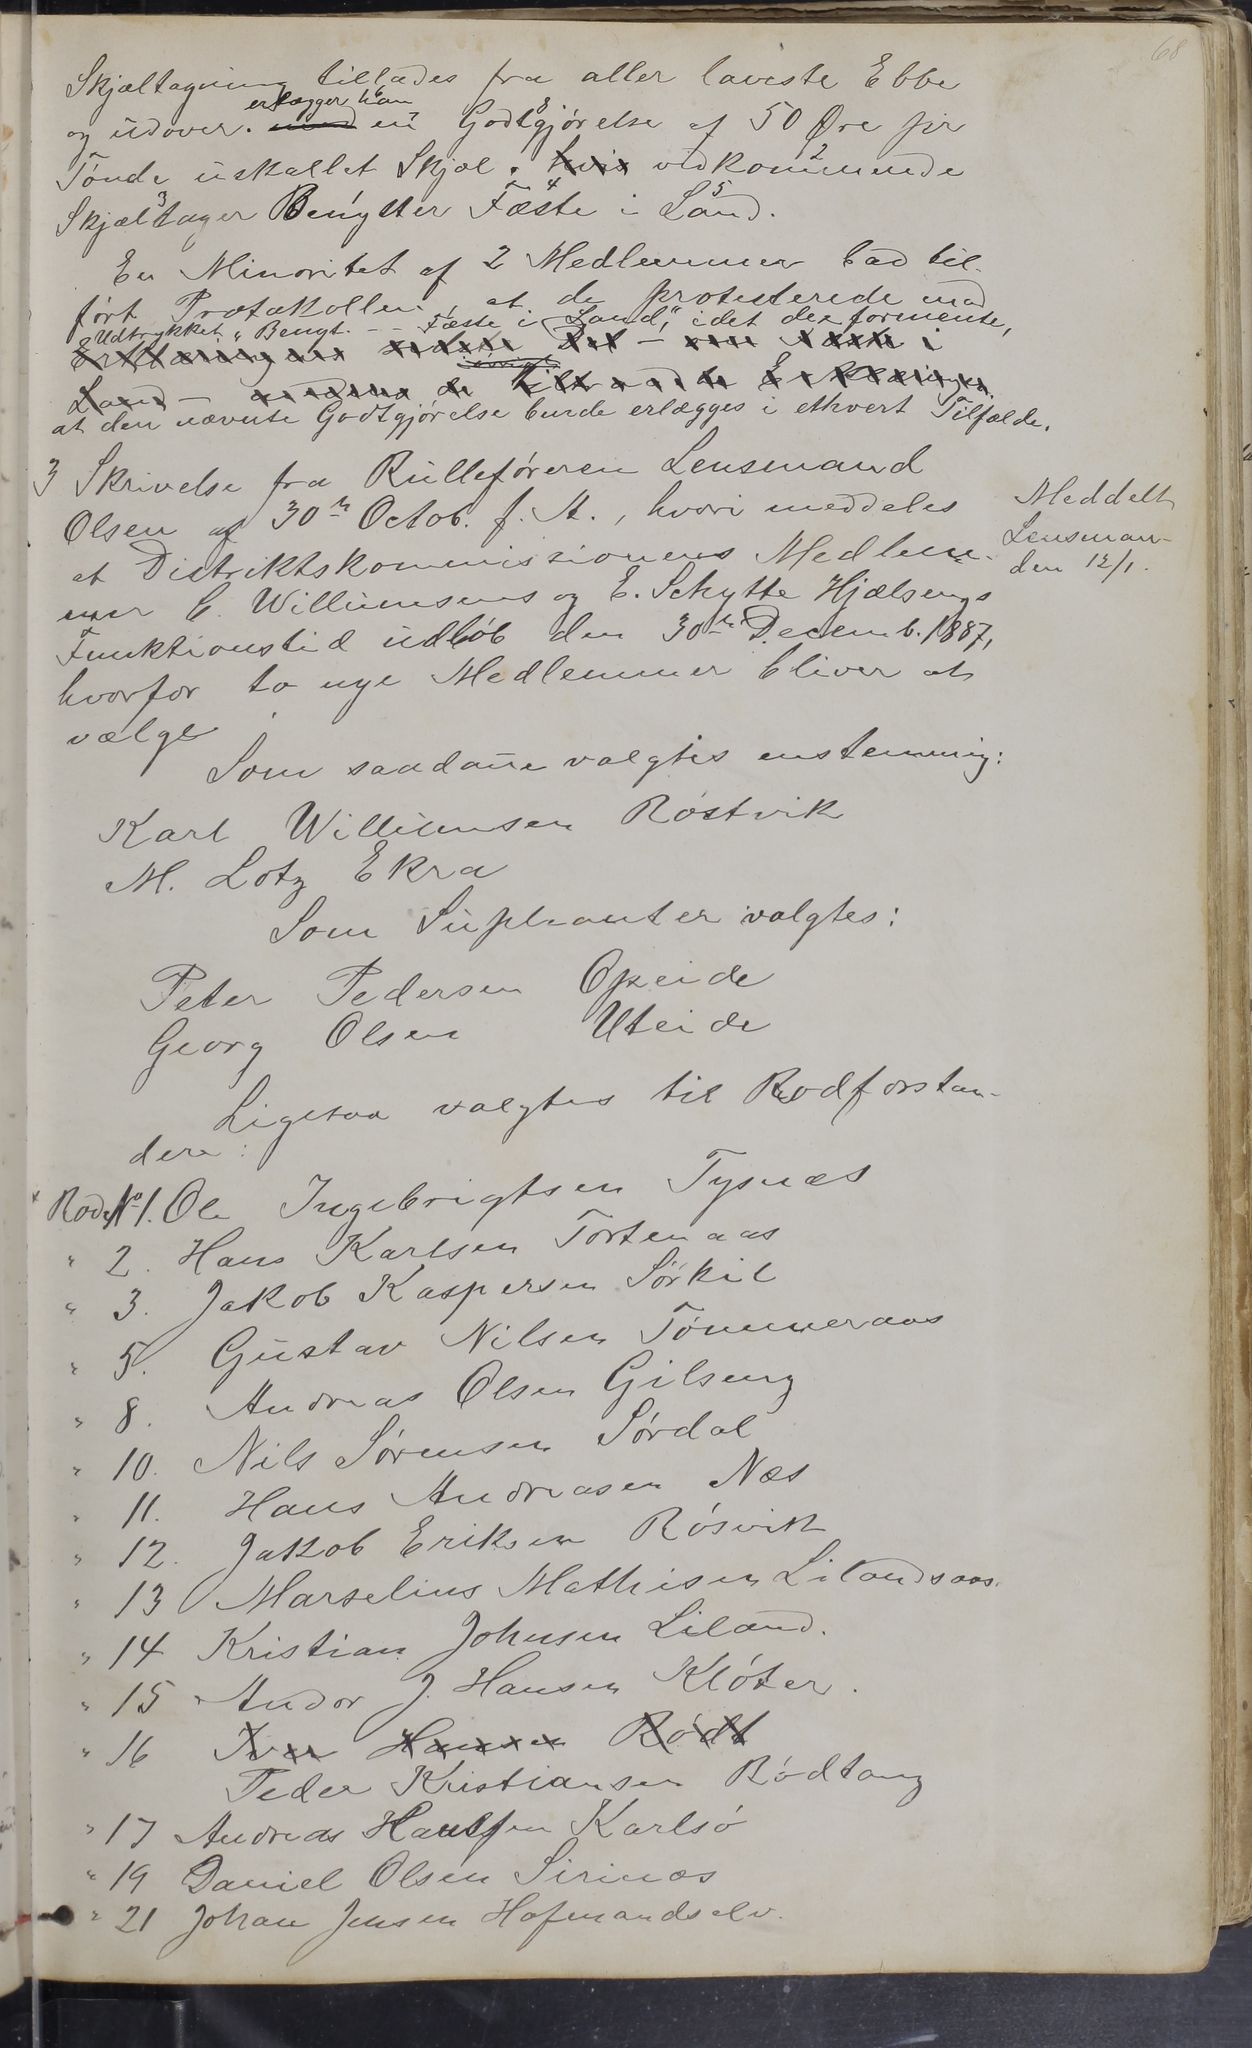 68
Skjæltagning tillades fra aller laveste Ebbe
erlægger han 6
og udover. med en 7 Godtgjørelse 8 af 50 Øre pr
Tønde uskallet Skjæl. hvis vedkommende 2
Skjæltager 3 Benytter Fæste 4 i Land 5.
En Minoritet af 2 Medlemmer bad til-
ført Protokollen, at de protesterede mod
Udtrykket "Benyt. - - Fæste i Land", idet de formente,
Land -
at den nævnte Godtgjørelse burde erlægges i ethvert Tilfælde.
3 Skrivelse fra Rulleføreren Lensmand
Olsen af 30te Octob. f. A., hvori meddeles
at Distriktskommissionens Medlem-
mer C. Willumsens og E. Schytte Hjælsengs
Funktionstid udløb den 30te Decemb. 1887,
hvorfor to nye Medlemmer bliver at
vælge.
Meddelt
Lensman-
den 12/1.
Som saadane valgtes enstemmig:
Karl Willumsen Røstvik
M. Lotz Ekra
Som Suplianter valgtes:
Peter Pedersen Opeide
Georg Olsen Uteide
Ligesaa valgtes til Rodforstan-
dere:
Rode No 1. Ole Ingebrigtsen Tysnæs
" 2. Hans Karlsen Tortenaas
" 3. Jakob Kaspersen Sørkil
" 5. Gustav Nilsen Tømmeraas
" 8. Andreas Olsen Gilseng
" 10. Nils Sørensen Sørdal
" 11. Hans Andreasen Næs
" 12. Jakob Eriksen Røsvik
" 13 Marselius Mathisen Lilandsaas.
" 14 Kristian Johnsen Liland.
" 15 Andor J. Hansen Kløter.
" 16 Iver Hansen Rødt
Peder Kristiansen Rødtang
" 17 Andreas Hansen Karlsø
" 19 Daniel Olsen Sirinæs
" 21 Johan Jensen Hofmandselv.